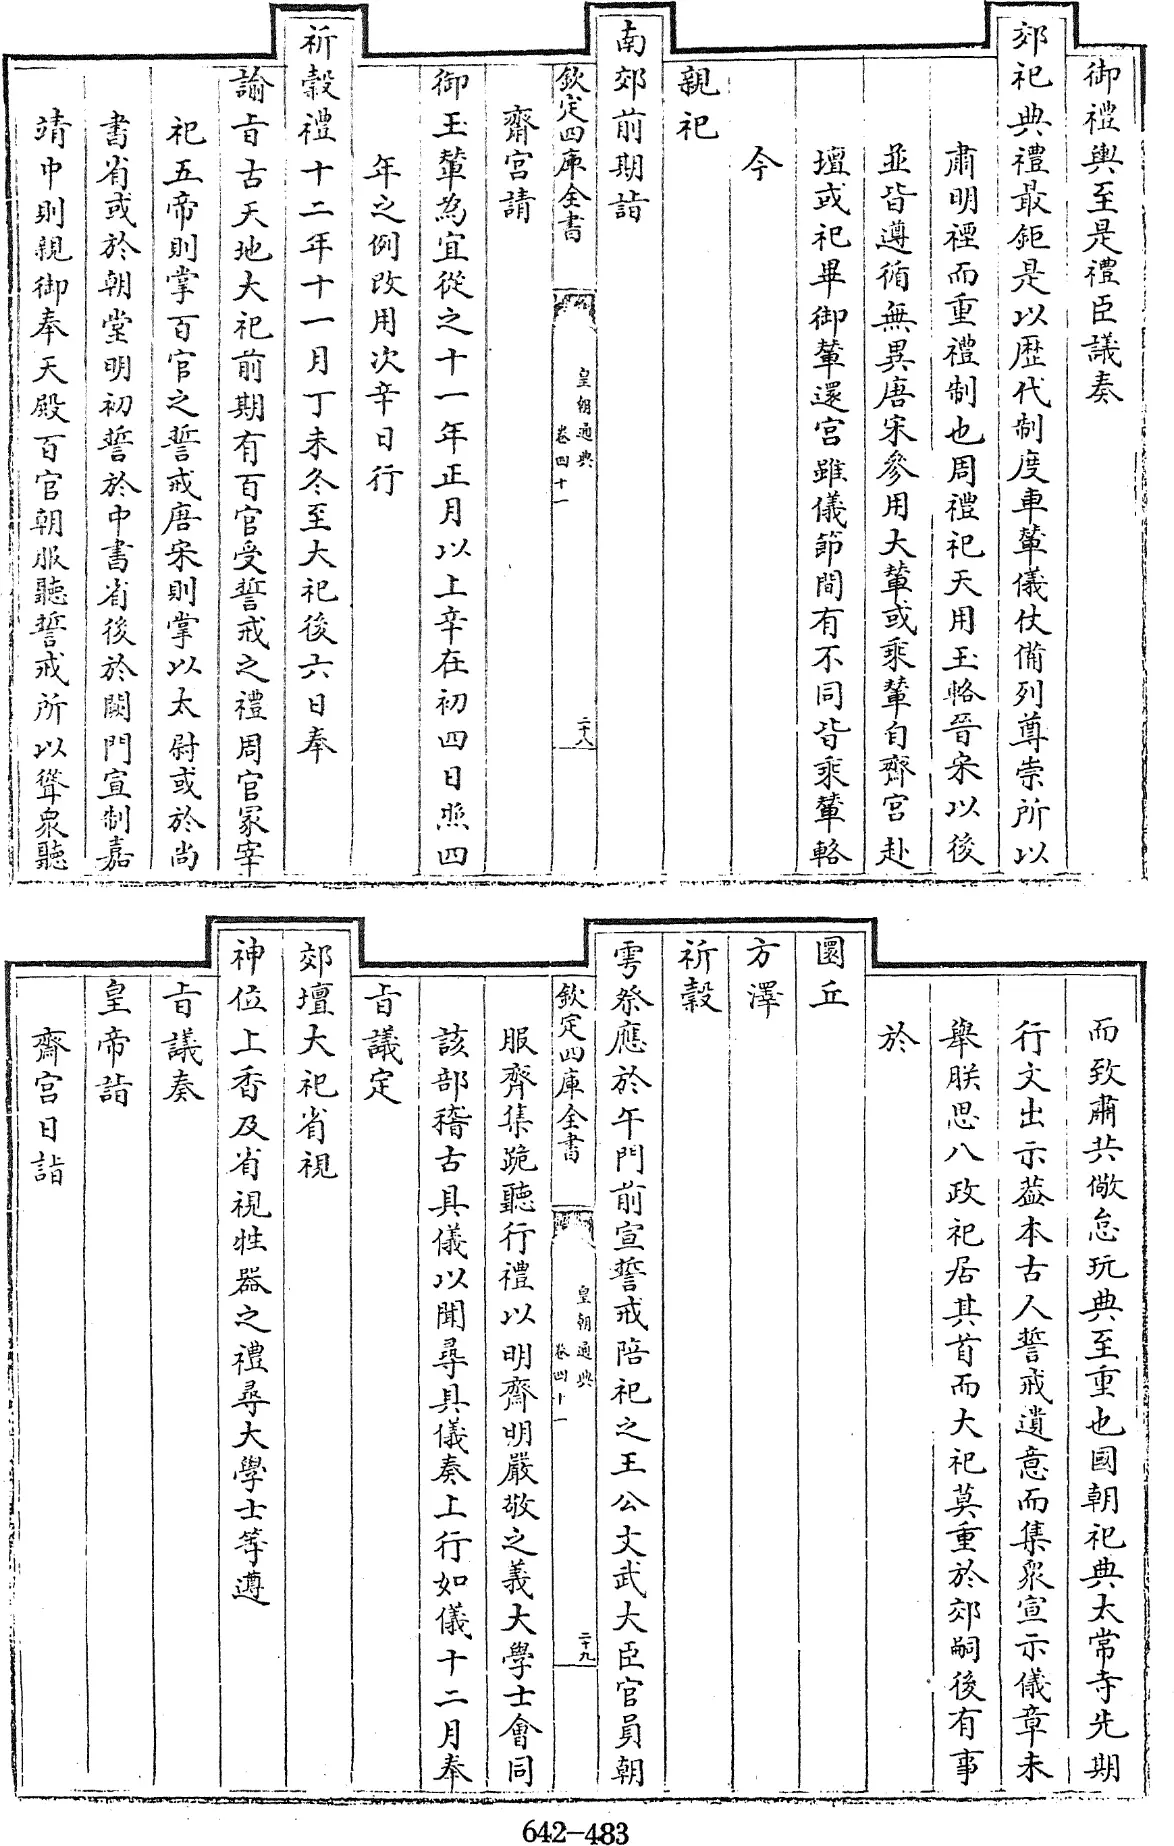 御禮輿至是禮臣議奏
郊祀典禮最鉅是以歴代制度車輦儀仗備列尊崇所以
肅明禋而重禮制也周禮祀天用玉輅晉宋以後
並皆遵循無異唐宋參用大輦或乘輦自齋宮赴
壇或祀畢御輦還宮雖儀節間有不同皆乘輦輅
今
親祀
南郊前期詣
欽定四庫全書
皇朝通典
卷四十一
二十八
齋宮請
御玉輦為宜從之十一年正月以上辛在初四日照四
年之例改用次辛日行
祈穀禮十二年十一月丁未冬至大祀後六日奉
諭旨古天地大祀前期有百官受誓戒之禮周官冢宰
祀五帝則掌百官之誓戒唐宋則掌以太尉或於尚
書省或於朝堂明初誓於中書省後於闕門宣制嘉
靖中則親御奉天殿百官朝服聽誓戒所以聳衆聽
而致肅共儆怠玩典至重也國朝祀典太常寺先期
行文出示葢本古人誓戒遺意而集衆宣示儀章未
舉朕思八政祀居其首而大祀莫重於郊嗣後有事
於
圜丘
方澤
祈穀
雩祭應於午門前宣誓戒陪祀之王公文武大臣官員朝
欽定四庫全書
皇朝通典
卷四十一
二十九
服齊集跪聽行禮以明齋明嚴敬之義大學士會同
該部稽古具儀以聞尋具儀奏上行如儀十二月奉
旨議定
郊壇大祀省視
神位上香及省視牲器之禮尋大學士等遵
旨議奏
皇帝詣
齋宮日詣
642-483